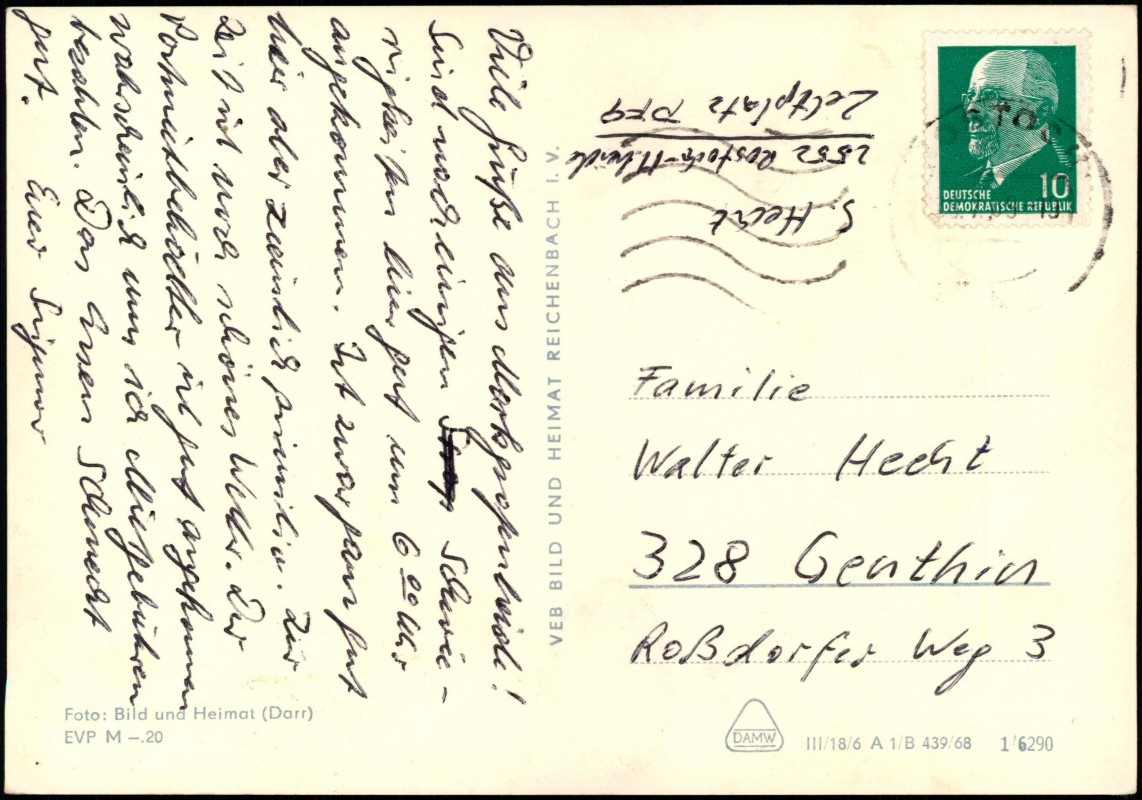 Viele Grüße aus Markgrafenheide!
Sind nach einigen Schwie-
rigkeiten hier gut um 6 00 Uhr
angekommen. Ist zwar ganz gut
hier aber ziemlich primitiv. Zur
Zeit ist noch schönes Wetter. Der
Portmitbehälter ist gut angekommen
wahrscheinlich muss ich Mietgebühren
bezahlen. Das Essen schmeckt
gut.
Euer
VEB BILD UND HEIMAT REICHENBACH I. V.
S. Hecht
2552 Rostock-
Zeltplatz
DEUTSCHE
DEMOKRATISCHE REPUBLIK
10
Familie
Walter Hecht
328 Genthin
Roßdorfer Weg 3
Foto: Bild und Heimat (Darr)
EVP M –.20
DAMW
III/18/6 A 1/B 439/68 1/6290